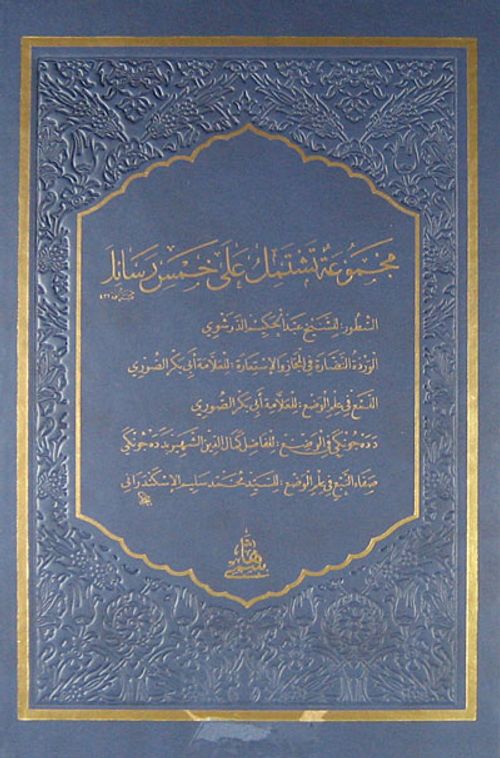 مجموعة تشتمل على خمس رسائل
السطور: للشيخ عبد الحكيم الدرشوي
الوردة النضارة في المجاز والإستعارة: للعلامة أبي بكر الصوري
النبع في علم الوضع: للعلامة أبي بكر الصوري
دده جونكي في الوضع: للفاضل كمال الدين الشهير بدده جونكي
صفاء النبع في علم الوضع: للسيد محمد سليم الإسكندراني